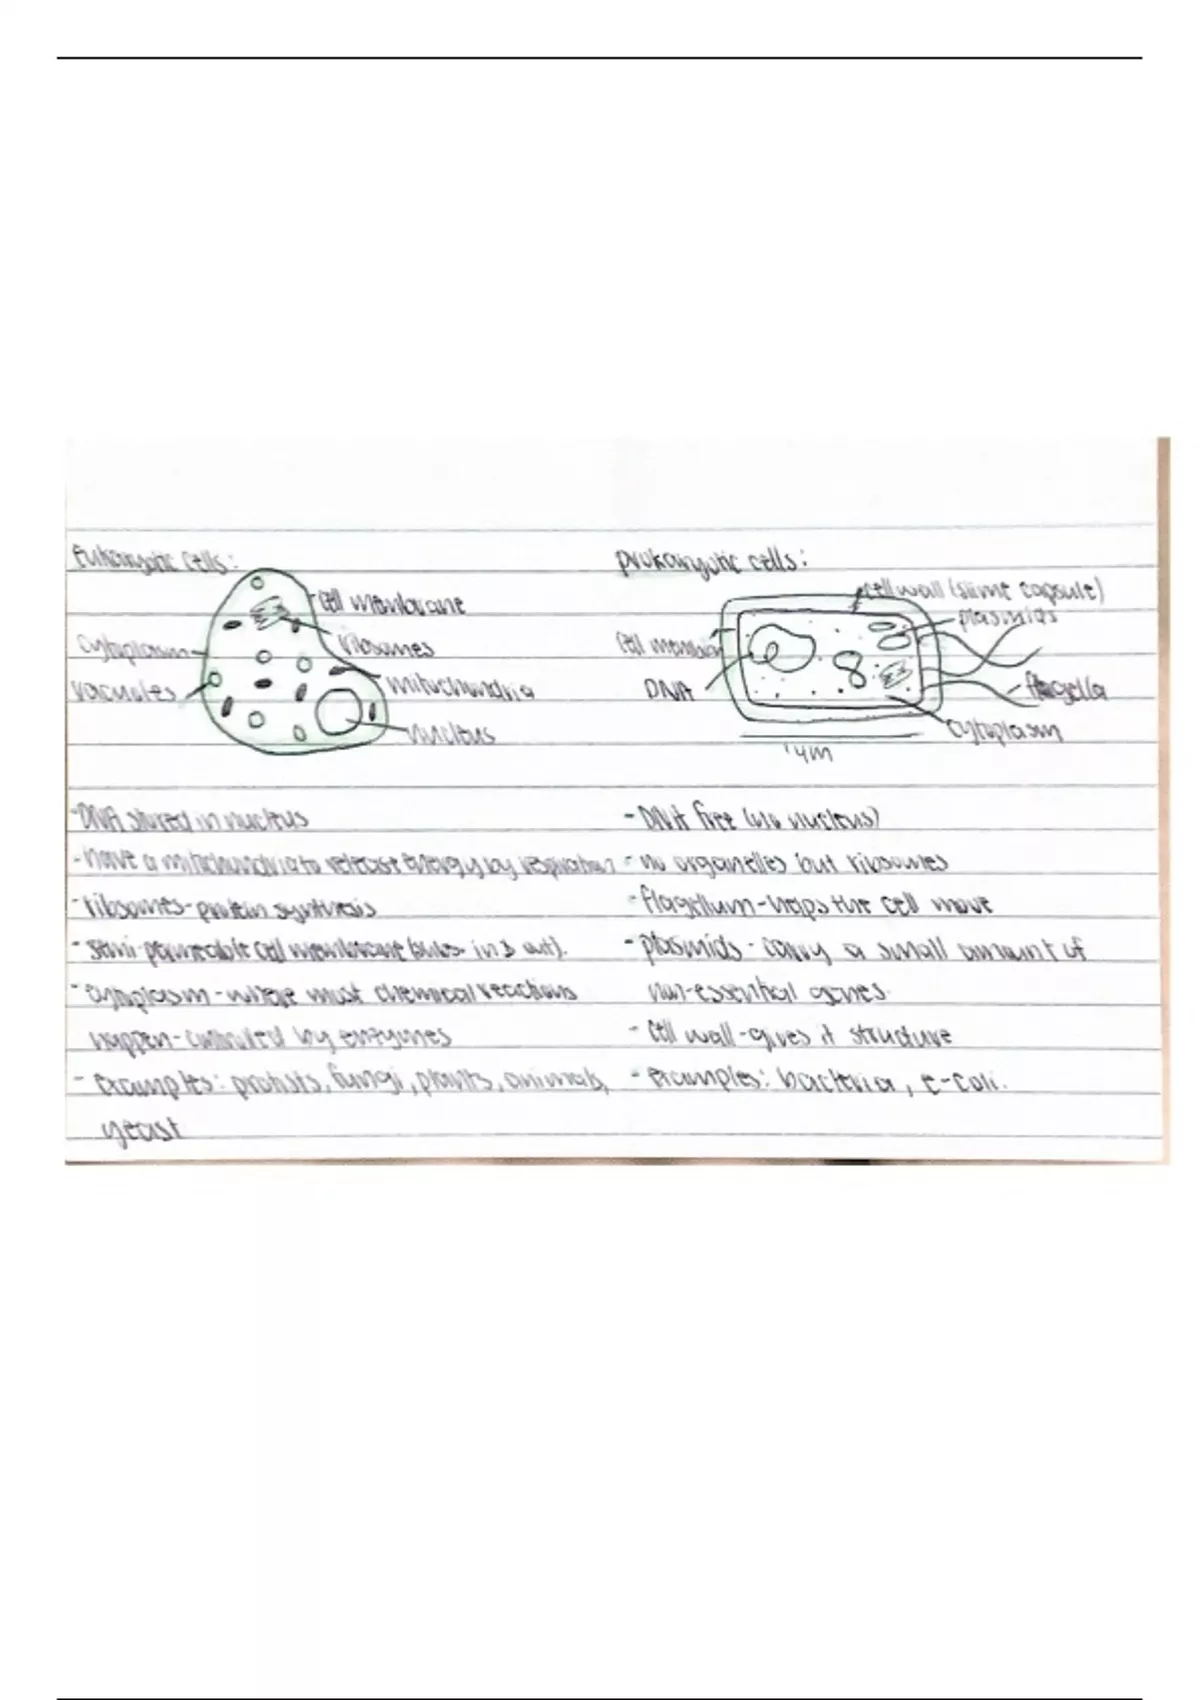 Eukaryotic cells:
cell membrane
ribosomes
cytoplasm
vacuoles
mitochondria
nucleus
- DNA stored in nucleus
- have a mitochondria to release energy by respiration
- ribosomes - protein synthesis
- semi-permeable cell membrane in & out).
- cytoplasm - where most chemical reactions
happen - controlled by enzymes
- examples: protists, fungi, plants, animals,
yeast
prokaryotic cells:
cell wall (slime capsule)
plasmids
cell membrane
DNA
flagella
cytoplasm
- DNA free (no nucleus)
- no organelles but ribosomes
- flagellum - helps the cell move
- plasmids - carry a small amount of
non-essential genes.
- cell wall - gives it structure
- examples: bacteria, e-coli.